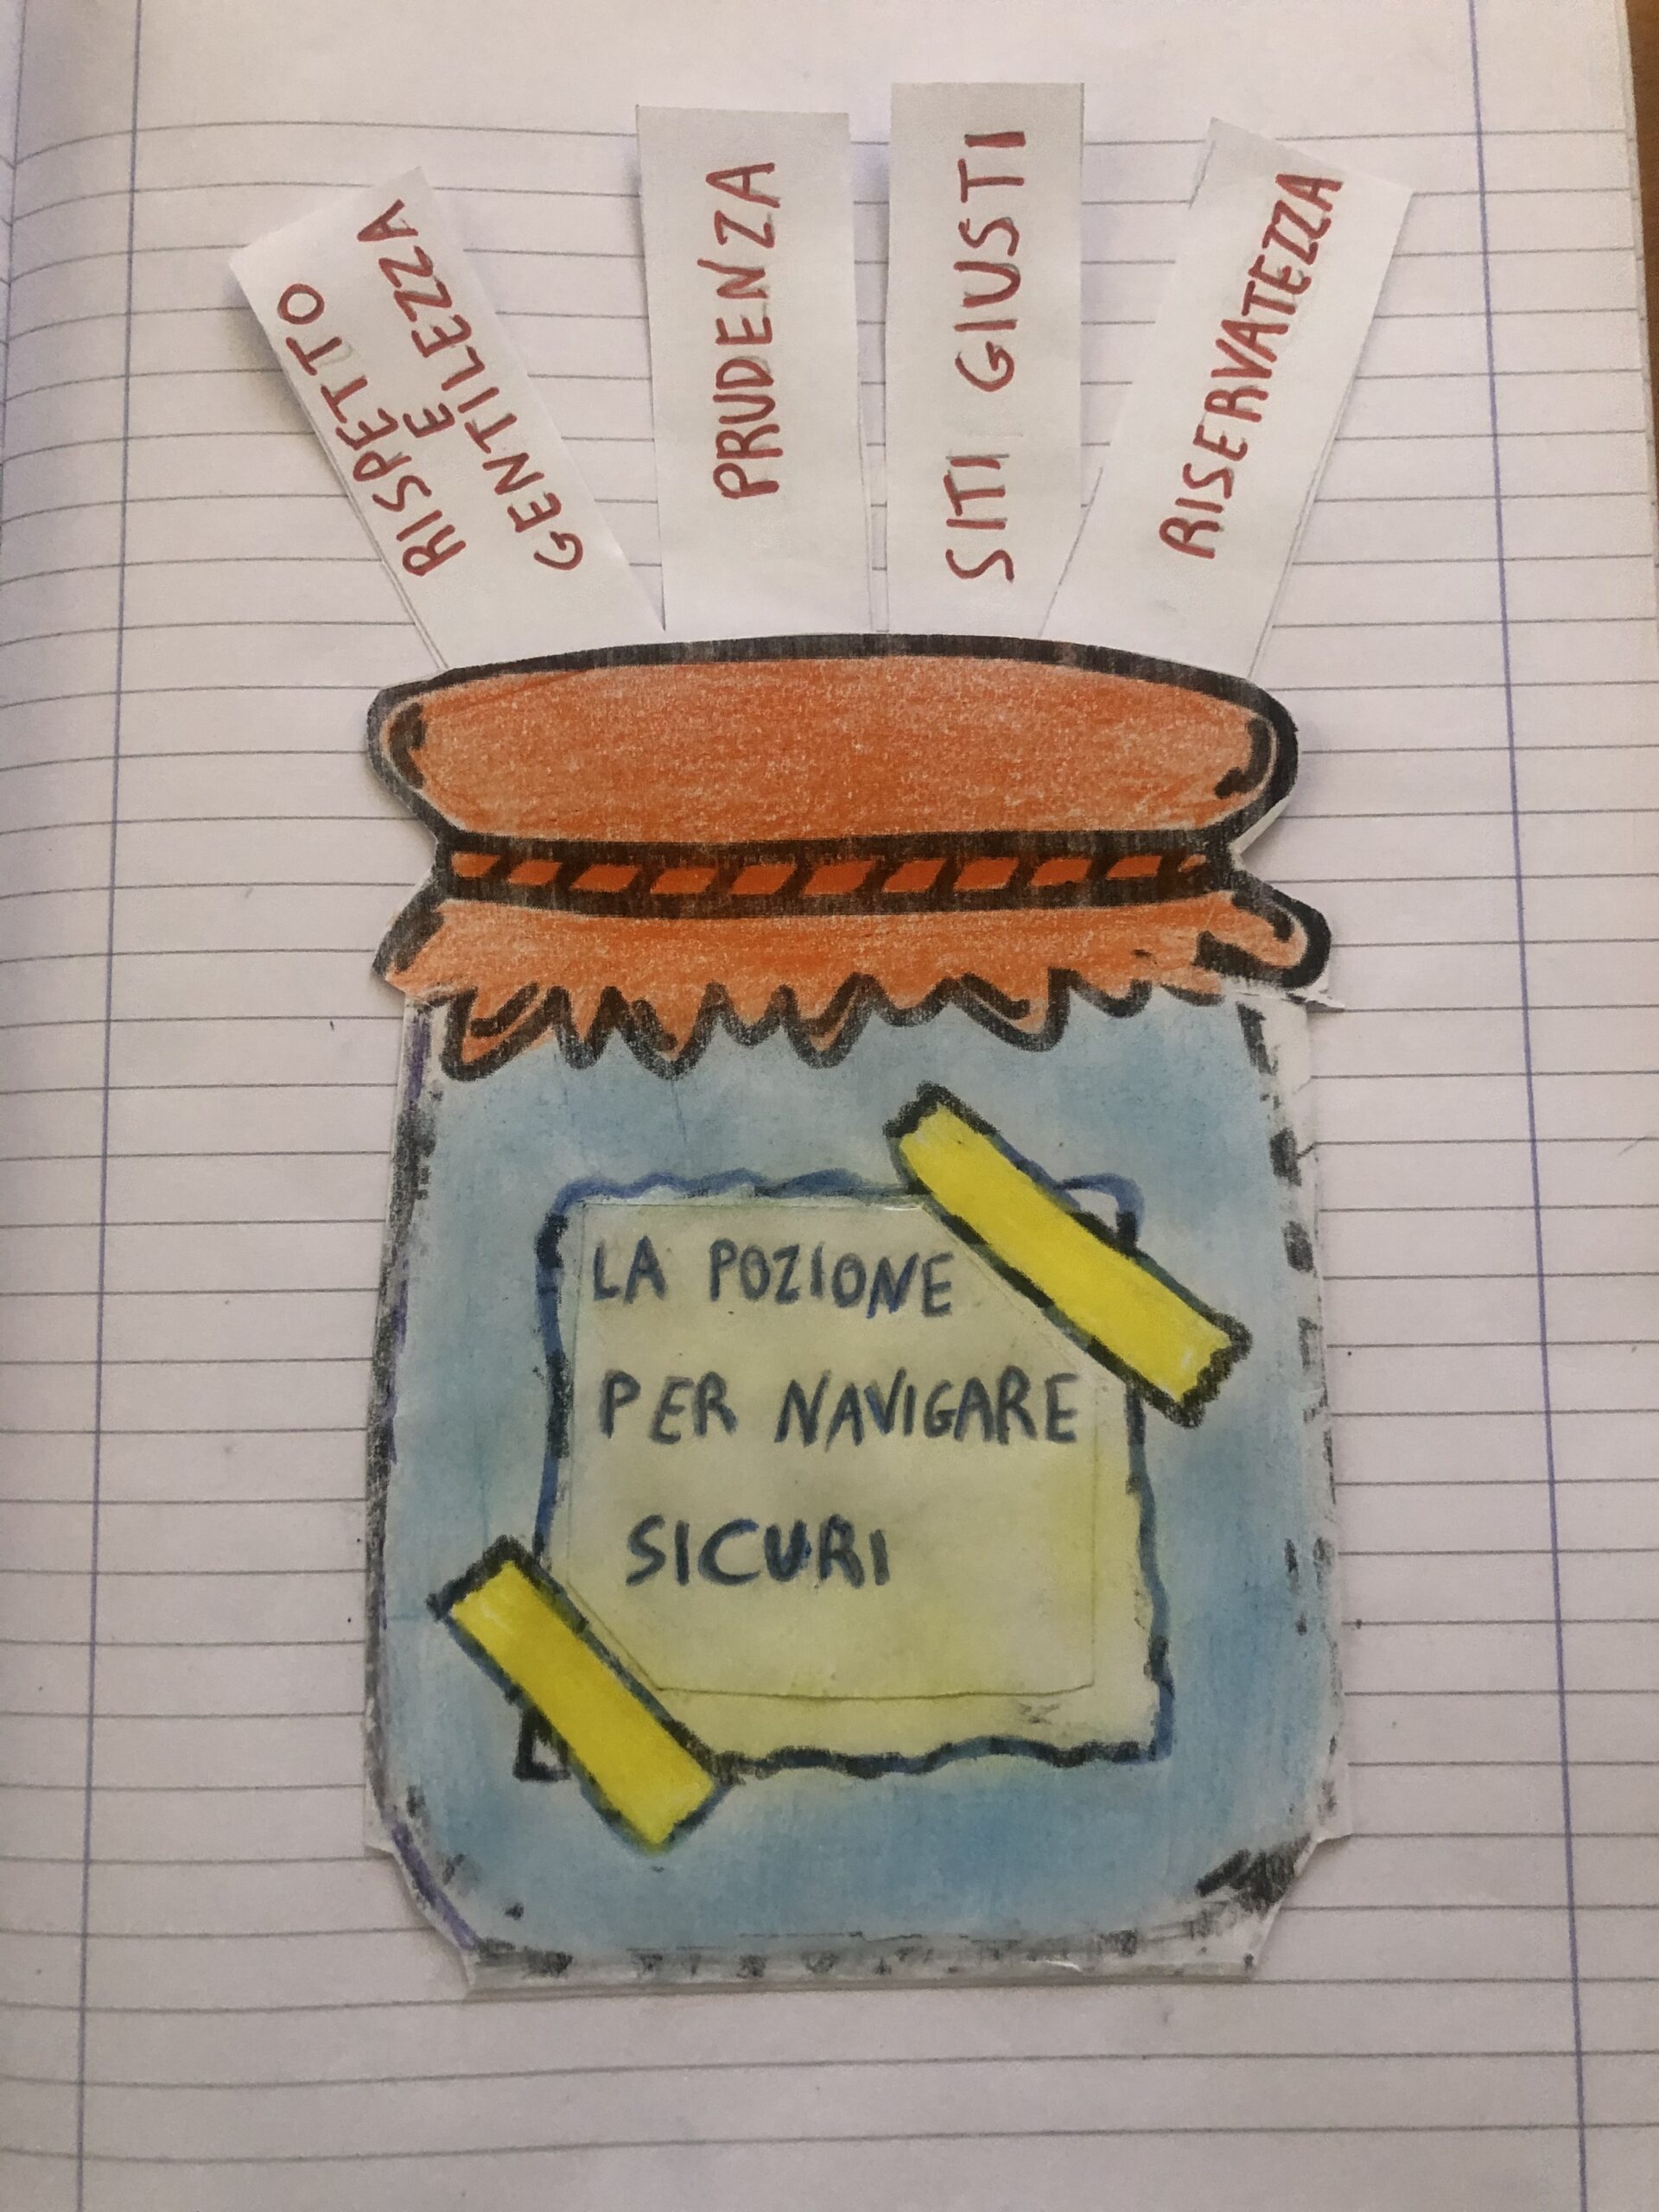 RISPETTO
E
GENTILEZZA
PRUDENZA
SITI GIUSTI
RISERVATEZZA
LA POZIONE
PER NAVIGARE
SICURI